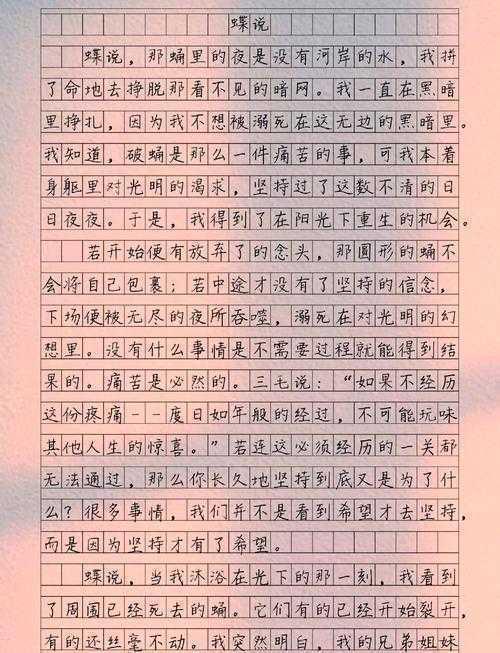 蝶说
蝶说，那蛹里的夜是没有河岸的水，我拼
了命地去挣脱那看不见的暗网。我一直在黑暗
里挣扎，因为我不想被溺死在这无边的黑暗里。
我知道，破蛹是那么一件痛苦的事，可我本着
身躯里对光明的渴求，坚持过了这数不清的日
日夜夜。于是，我得到了在阳光下重生的机会。
若开始便有放弃了的念头，那圆形的蛹不
会将自己包裹；若中途才没有了坚持的信念，
下场便被无尽的夜所吞噬，溺死在对光明的幻
想里。没有什么事情是不需要过程就能得到结
果的。痛苦是必然的。三毛说：“如果不经历
这份疼痛——度日如年般的经过，不可能玩味
其他人生的惊喜。”若连这必须经历的一关都
无法通过，那么你长久地坚持到底又是为了什
么？很多事情，我们并不是看到希望才去坚持，
而是因为坚持才有了希望。
蝶说，当我沐浴在光下的那一刻，我看到
了周围已经死去的蛹。它们有的已经开始裂开，
有的还丝毫不动。我突然明白，我的兄弟姐妹